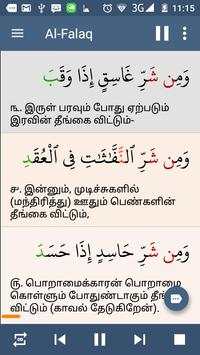 3G 11:15
Al-Falaq
وَمِن شَرِّ غَاسِقٍ إِذَا وَقَبَ
௩. இருள் பரவும் போது ஏற்படும்
இரவின் தீங்கை விட்டும்-
وَمِن شَرِّ النَّفَّاثَاتِ فِي الْعُقَدِ
௪. இன்னும், முடிச்சுகளில்
(மந்திரித்து) ஊதும் பெண்களின்
தீங்கை விட்டும்,
وَمِن شَرِّ حَاسِدٍ إِذَا حَسَدَ
௫. பொறாமைக்காரன் பொறாமை
கொள்ளும் போதுண்டாகும் தீங்கை
விட்டும் (காவல் தேடுகிறேன்).